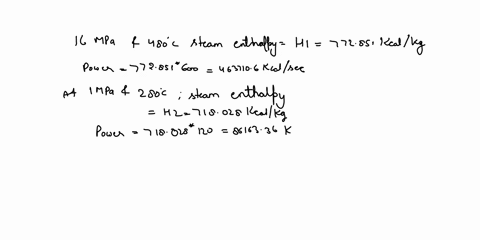 16 MPa & 480°C steam enthalpy = H1 = 772.851 Kcal/kg
Power = 772.851*600 = 463710.6 Kcal/sec
At 1MPa & 280°C ; steam enthalpy
= H2 = 718.028 Kcal/kg
Power = 718.028*120 = 86163.36 K